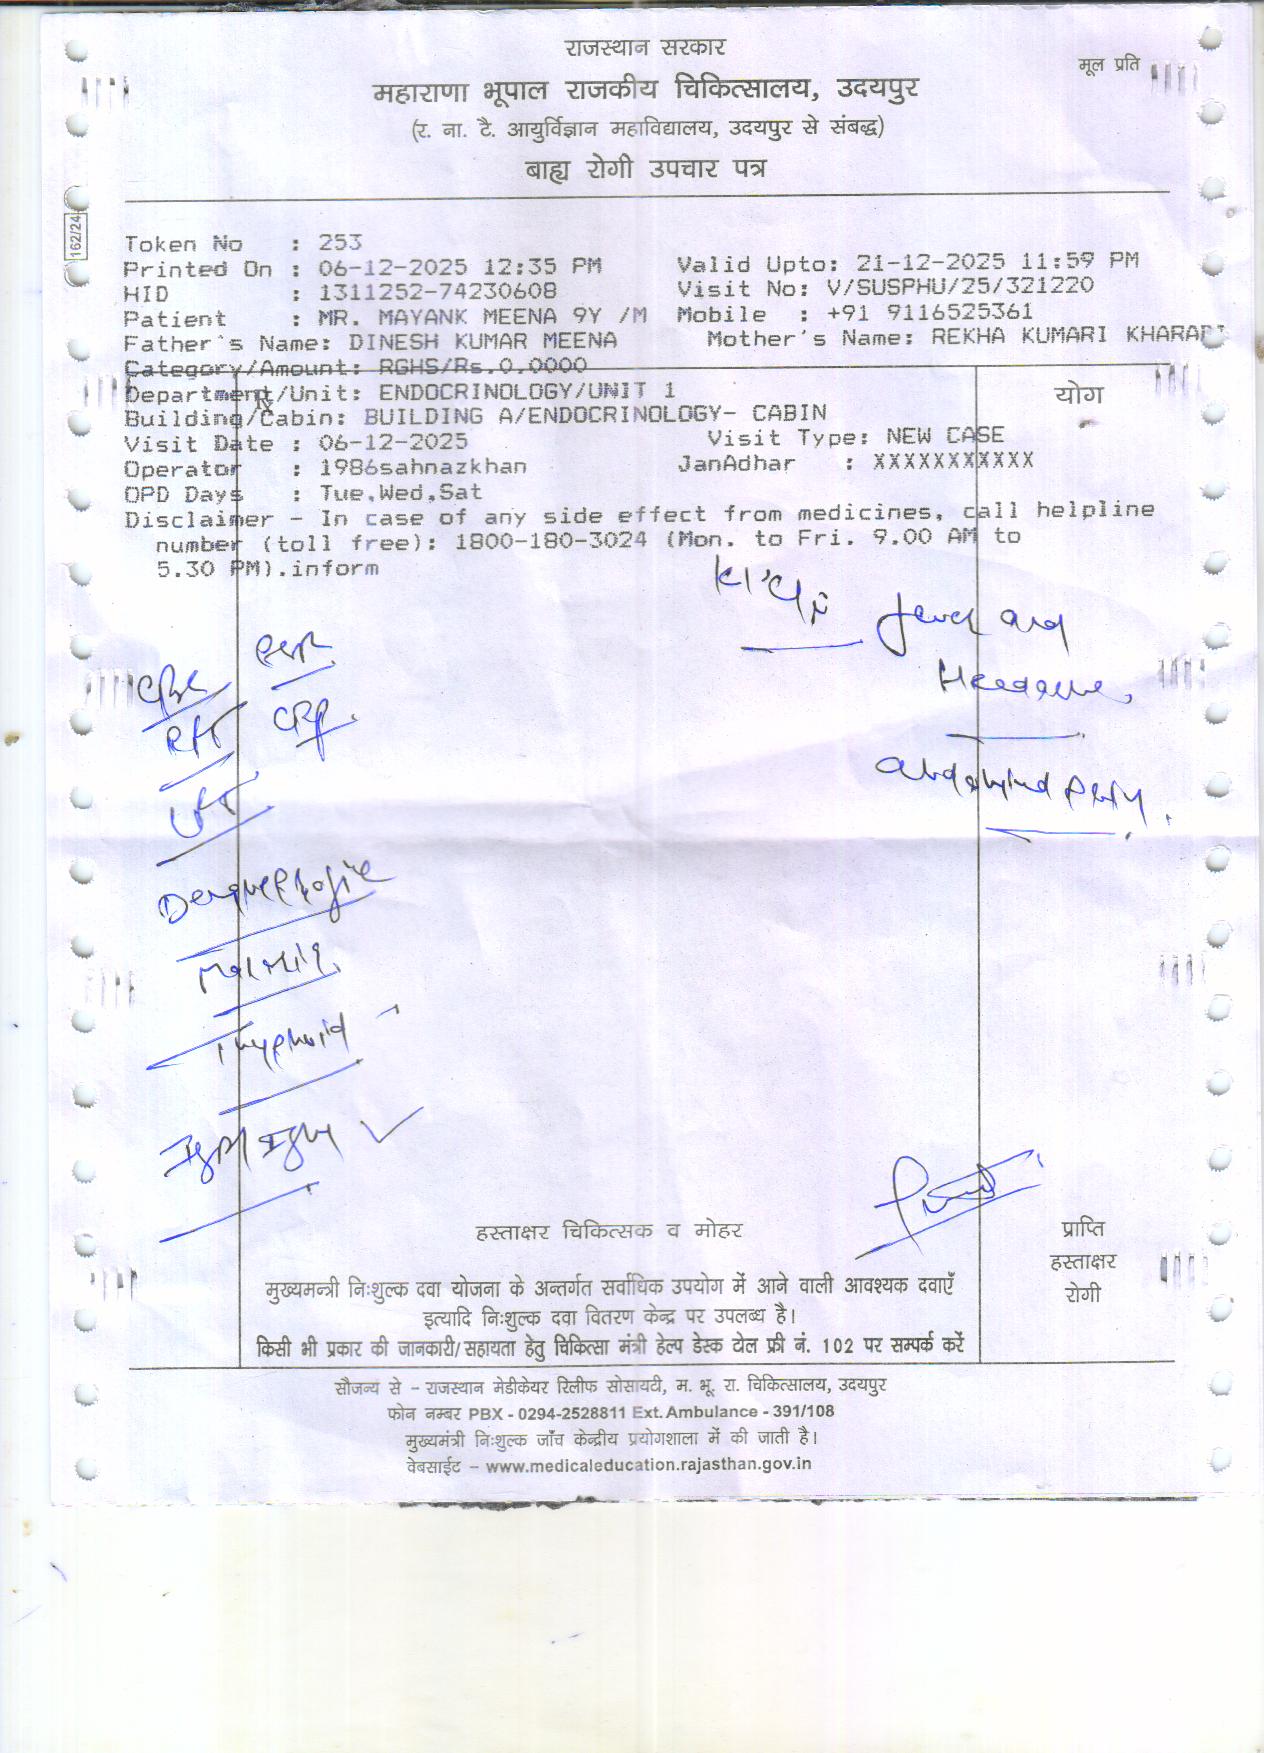 राजस्थान सरकार
मूल प्रति
महाराणा भूपाल राजकीय चिकित्सालय, उदयपुर
(र. ना. टै. आयुर्विज्ञान महाविद्यालय, उदयपुर से संबद्ध)
बाह्य रोगी उपचार पत्र
162/24
Token No : 253
Printed On : 06-12-2025 12:35 PM Valid Upto: 21-12-2025 11:59 PM
HID : 1311252-74230608 Visit No: V/SUSPHU/25/321220
Patient : MR. MAYANK MEENA 9Y /M Mobile : +91 9116525361
Father's Name: DINESH KUMAR MEENA Mother's Name: REKHA KUMARI KHARADI
Category/Amount: RGHS/Rs.0.0000
Department/Unit: ENDOCRINOLOGY/UNIT 1
योग
Rx
Building/Cabin: BUILDING A/ENDOCRINOLOGY- CABIN
Visit Date : 06-12-2025 Visit Type: NEW CASE
Operator : 1986sahnazkhan JanAdhar : XXXXXXXXXXX
OPD Days : Tue,Wed,Sat
Disclaimer - In case of any side effect from medicines, call helpline
number (toll free): 1800-180-3024 (Mon. to Fri. 9.00 AM to
5.30 PM).inform
fever and
Headache,
abdominal pain.
CBC ESR
RFT CRP
LFT
Dengue Profile
Malaria
Thyphoid
हस्ताक्षर चिकित्सक व मोहर
प्राप्ति
हस्ताक्षर
रोगी
मुख्यमन्त्री निःशुल्क दवा योजना के अन्तर्गत सर्वाधिक उपयोग में आने वाली आवश्यक दवाएँ
इत्यादि निःशुल्क दवा वितरण केन्द्र पर उपलब्ध है।
किसी भी प्रकार की जानकारी/सहायता हेतु चिकित्सा मंत्री हेल्प डेस्क टोल फ्री नं. 102 पर सम्पर्क करें
सौजन्य से – राजस्थान मेडीकेयर रिलीफ सोसायटी, म. भू. रा. चिकित्सालय, उदयपुर
फोन नम्बर PBX - 0294-2528811 Ext. Ambulance - 391/108
मुख्यमंत्री निःशुल्क जाँच केन्द्रीय प्रयोगशाला में की जाती है।
वेबसाईट – www.medicaleducation.rajasthan.gov.in